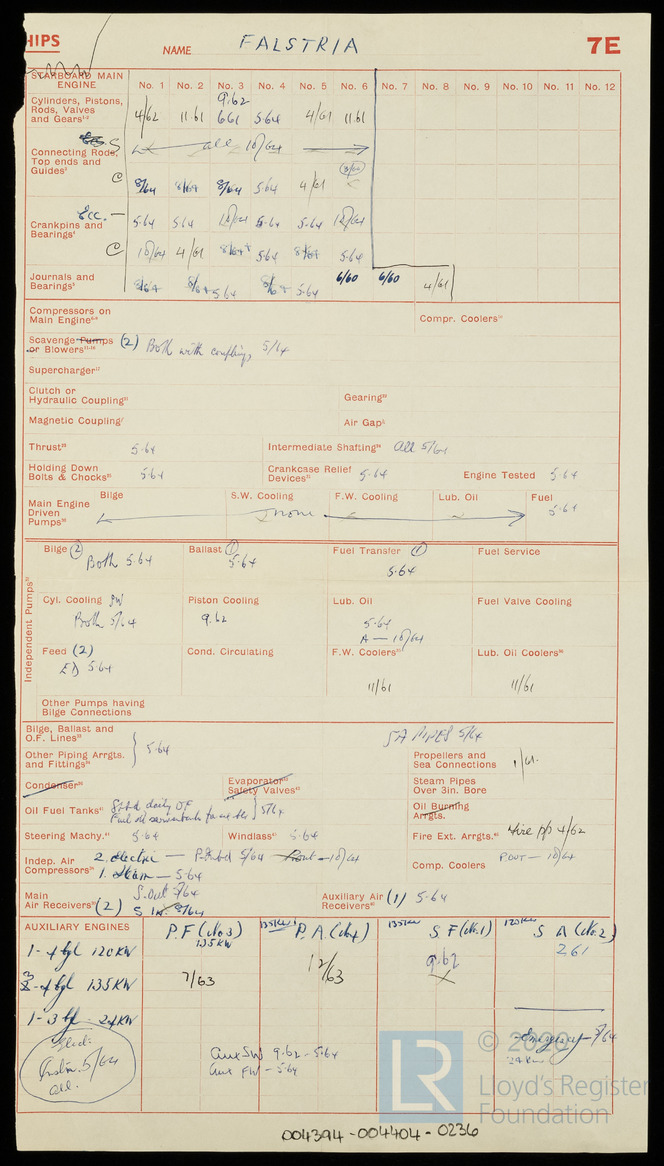 HIPS
NAME FALSTRIA 7E
STARBOARD MAIN
ENGINE No. 1 No. 2 No. 3 No. 4 No. 5 No. 6 No. 7 No. 8 No. 9 No. 10 No. 11 No. 12
9.62
Cylinders, Pistons,
Rods, Valves
and Gears 4/62 11.61 6.61 5.64 4/61 11.61
S
Connecting Rods, all 10/64
Top ends and
Guides
C 8/64 8/64 8/64 5.64 4/61
Ecc. 5.64 5.64 10/64 5.64 5.64 10/64
Crankpins and
Bearings
C 10/64 4/61 8/64 5.64 8/64 5.64
Journals and
Bearings 8/64 8/64 5.64 8/64 5.64 6/60 6/60 4/61
Compressors on
Main Engine Compr. Coolers
Scavenge Pumps
or Blowers (2) Both with couplings 5/64
Supercharger
Clutch or
Hydraulic Coupling Gearing
Magnetic Coupling Air Gap
Thrust 5.64 Intermediate Shafting All 5/61
Holding Down
Bolts & Chocks 5.64 Crankcase Relief
Devices 5.64 Engine Tested 5.64
Main Engine
Driven
Pumps Bilge S.W. Cooling F.W. Cooling Lub. Oil Fuel
none 5.64
Independent Pumps
Bilge (2) Ballast (1) Fuel Transfer (1) Fuel Service
Both 5.64 5.64 5.64
Cyl. Cooling SW Piston Cooling Lub. Oil Fuel Valve Cooling
Both 5/64 9.62 5.64
A — 10/64
Feed (2) Cond. Circulating F.W. Coolers Lub. Oil Coolers
ED 5.64 11/61 11/61
Other Pumps having
Bilge Connections
Bilge, Ballast and
O.F. Lines SA PIPES 5/64
Other Piping Arrgts.
and Fittings 5.64 Propellers and
Sea Connections 1/61.
Condenser Evaporator
Safety Valves Steam Pipes
Over 3in. Bore
Oil Fuel Tanks daily OF
5/64 Oil Burning
Arrgts.
Steering Machy. 5.64 Windlass 5.64 Fire Ext. Arrgts. Wire pp 4/62
Indep. Air
Compressors 2. electric — P. inbd 5/64 Pout — 10/64
1. Steam — 5.64 Comp. Coolers P.OUT — 10/64
Main
Air Receivers (2) S. Out 5/64
S In. 8/64 Auxiliary Air
Receivers (1) 5.64
AUXILIARY ENGINES P.F (No3) 135KW 135KW P.A. (No4) 135KW S F (No.1) 120KW S A (No.2)
1 - 4 byl 120KW 9.62 2 61
3 - 4 byl 135KW 7/63 12/63 X
1 - 3 byl. 24KW
Elect:
Instn. 5/64
all.
Emergency — 5/64
24KW
Aux SW 9.62 - 5.64
Aux FW - 5.64
LR © 2020
Lloyd's Register
Foundation
004394-004404-0236